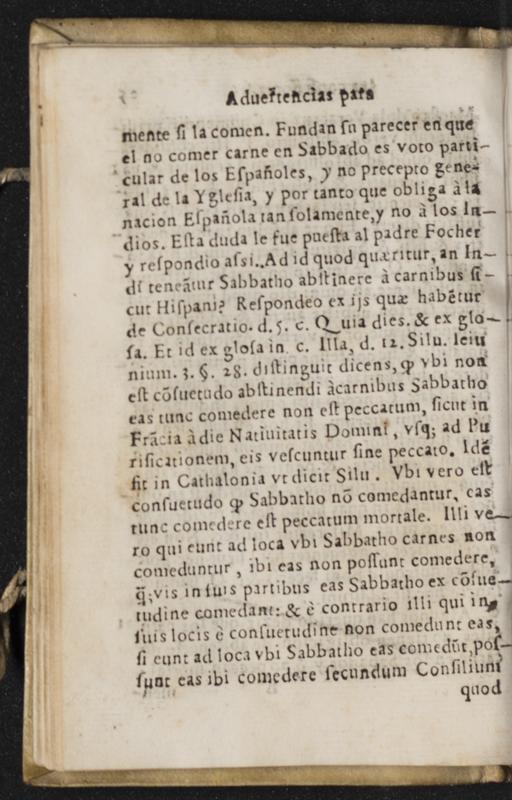 Aduertencias para
mente ſi la comen. Fundan ſu parecer en que
el no comer carne en Sabbado es voto parti-
cular de los Eſpañoles, y no precepto gene-
ral de la Ygleſia, y por tanto que obliga à la
nacion Eſpañola tan ſolamente, y no à los In-
dios. Eſta duda le fue pueſta al padre Focher
y reſpondio aſsi. Ad id quod quæritur, an In-
di teneãtur Sabbatho abſtinere à carnibus ſi-
cut Hiſpani? Reſpondeo ex ijs quæ habẽtur
de Conſecratio. d. 5. c. Quia dies. & ex glo-
ſa. Et id ex gloſa in c. Illa, d. 12. Silu. Ieiu
nium. 3. §. 28. diſtinguit dicens, ꝙ vbi non
eſt cõſuetudo abſtinendi àcarnibus Sabbatho
eas tunc comedere non eſt peccatum, ſicut in
Frãcia à die Natiuitatis Domini, vſq; ad Pu
rificationem, eis veſcuntur ſine peccato. Idẽ
fit in Cathalonia vt dicit Silu. Vbi vero eſt
conſuetudo ꝙ Sabbatho nõ comedantur, eas
tunc comedere eſt peccatum mortale. Illi ve-
ro qui eunt ad loca vbi Sabbatho carnes non
comeduntur, ibi eas non poſſunt comedere,
q̃;vis in ſuis partibus eas Sabbatho ex cõſue-
tudine comedant: & è contrario illi qui in
ſuis locis è conſuetudine non comedunt eas,
ſi eunt ad loca vbi Sabbatho eas comedũt, poſ-
ſunt eas ibi comedere ſecundum Conſilium
quod